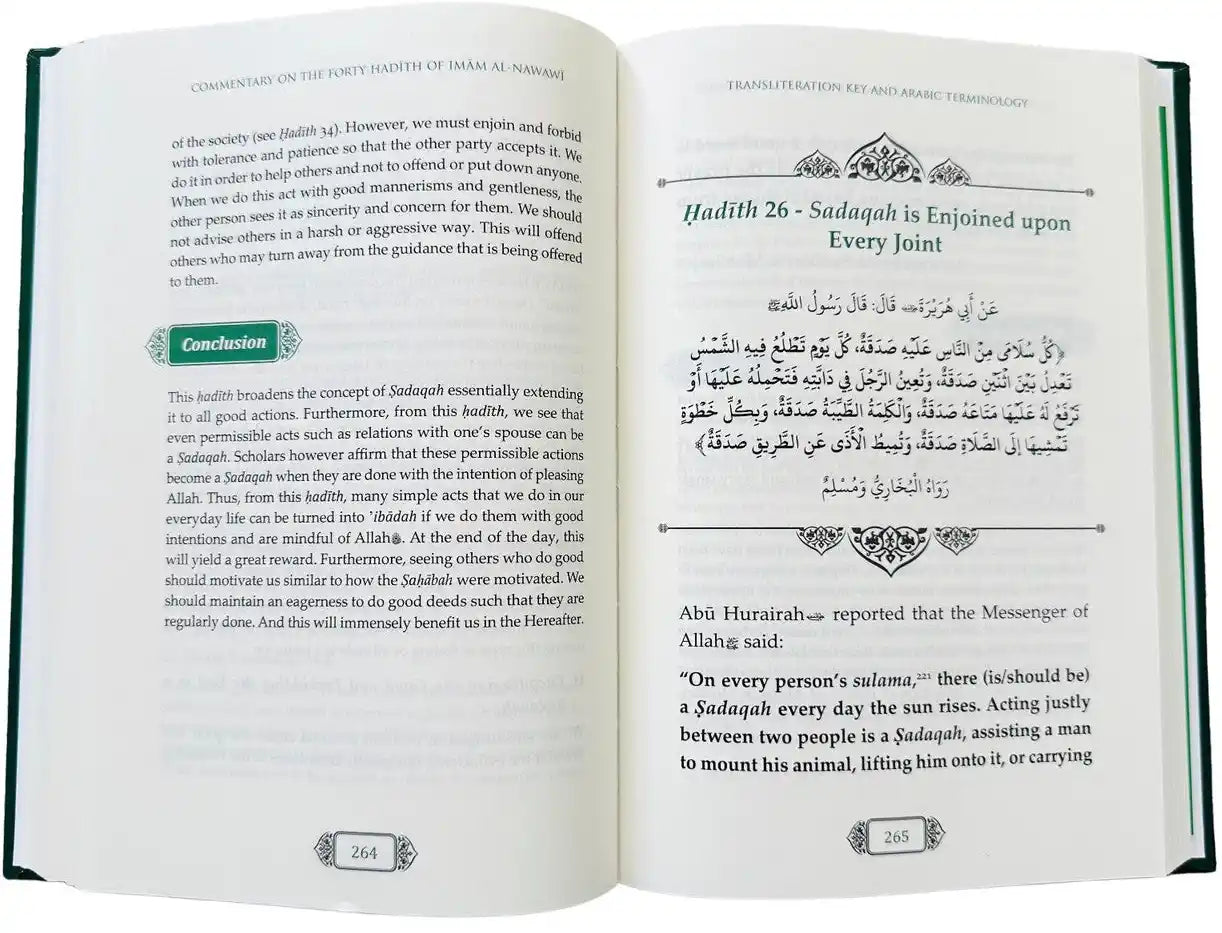 COMMENTARY ON THE FORTY HADĪTH OF IMĀM AL-NAWAWĪ
of the society (see Ḥadīth 34). However, we must enjoin and forbid
with tolerance and patience so that the other party accepts it. We
do it in order to help others and not to offend or put down anyone.
When we do this act with good mannerisms and gentleness, the
other person sees it as sincerity and concern for them. We should
not advise others in a harsh or aggressive way. This will offend
others who may turn away from the guidance that is being offered
to them.
Conclusion
This ḥadīth broadens the concept of Ṣadaqah essentially extending
it to all good actions. Furthermore, from this ḥadīth, we see that
even permissible acts such as relations with one's spouse can be
a Ṣadaqah. Scholars however affirm that these permissible actions
become a Ṣadaqah when they are done with the intention of pleasing
Allah. Thus, from this ḥadīth, many simple acts that we do in our
everyday life can be turned into 'ibādah if we do them with good
intentions and are mindful of Allahﷻ. At the end of the day, this
will yield a great reward. Furthermore, seeing others who do good
should motivate us similar to how the Ṣaḥābah were motivated. We
should maintain an eagerness to do good deeds such that they are
regularly done. And this will immensely benefit us in the Hereafter.
264
TRANSLITERATION KEY AND ARABIC TERMINOLOGY
Ḥadīth 26 - Sadaqah is Enjoined upon
Every Joint
عَنْ أَبِي هُرَيْرَةَ قَالَ: قَالَ رَسُولُ اللَّهِ ﷺ
﴿كُلُّ سُلَامَى مِنَ النَّاسِ عَلَيْهِ صَدَقَةٌ، كُلَّ يَوْمٍ تَطْلُعُ فِيهِ الشَّمْسُ
تَعْدِلُ بَيْنَ اثْنَيْنِ صَدَقَةٌ، وَتُعِينُ الرَّجُلَ فِي دَابَّتِهِ فَتَحْمِلُهُ عَلَيْهَا أَوْ
تَرْفَعُ لَهُ عَلَيْهَا مَتَاعَهُ صَدَقَةٌ، وَالْكَلِمَةُ الطَّيِّبَةُ صَدَقَةٌ، وَبِكُلِّ خَطْوَةٍ
تَمْشِيهَا إِلَى الصَّلَاةِ صَدَقَةٌ، وَتُمِيطُ الْأَذَى عَنِ الطَّرِيقِ صَدَقَةٌ﴾
رَوَاهُ الْبُخَارِيُّ وَمُسْلِمٌ
Abū Hurairah reported that the Messenger of
Allahﷺ said:
“On every person's sulama,²²¹ there (is/should be)
a Ṣadaqah every day the sun rises. Acting justly
between two people is a Ṣadaqah, assisting a man
to mount his animal, lifting him onto it, or carrying
265